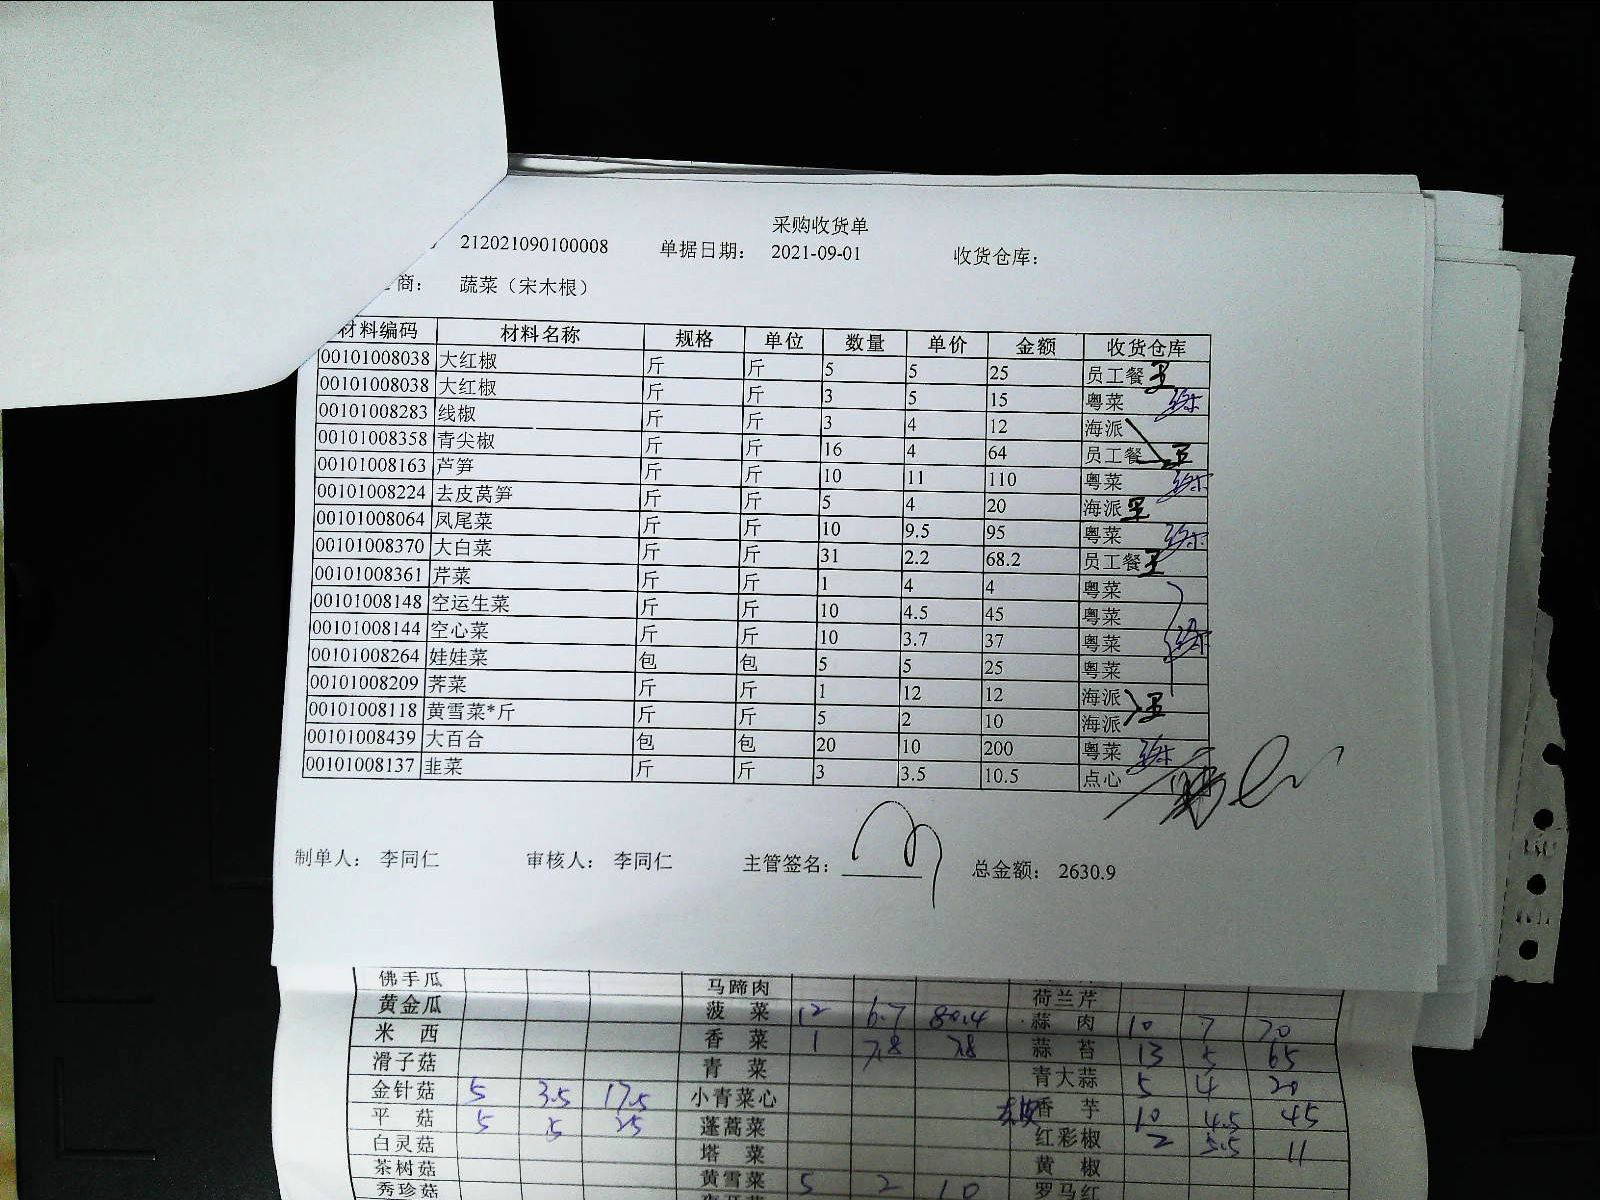 采购收货单
212021090100008 单据日期： 2021-09-01 收货仓库：
商： 蔬菜（宋木根）
材料编码 材料名称 规格 单位 数量 单价 金额 收货仓库
00101008038 大红椒 斤 斤 5 5 25 员工餐
00101008038 大红椒 斤 斤 3 5 15 粤菜
00101008283 线椒 斤 斤 3 4 12 海派
00101008358 青尖椒 斤 斤 16 4 64 员工餐
00101008163 芦笋 斤 斤 10 11 110 粤菜
00101008224 去皮莴笋 斤 斤 5 4 20 海派
00101008064 凤尾菜 斤 斤 10 9.5 95 粤菜
00101008370 大白菜 斤 斤 31 2.2 68.2 员工餐
00101008361 芹菜 斤 斤 1 4 4 粤菜
00101008148 空运生菜 斤 斤 10 4.5 45 粤菜
00101008144 空心菜 斤 斤 10 3.7 37 粤菜
00101008264 娃娃菜 包 包 5 5 25 粤菜
00101008209 荠菜 斤 斤 1 12 12 海派
00101008118 黄雪菜*斤 斤 斤 5 2 10 海派
00101008439 大百合 包 包 20 10 200 粤菜
00101008137 韭菜 斤 斤 3 3.5 10.5 点心
制单人： 李同仁 审核人： 李同仁 主管签名： 总金额： 2630.9
佛手瓜 马蹄肉 荷兰芹
黄金瓜 菠菜 12 6.7 80.4 蒜肉 10 7 70
米西 香菜 1 7.8 7.8 蒜苔 13 5 65
滑子菇 青菜 青大蒜 5 4 20
金针菇 5 3.5 17.5 小青菜心 香芋 10 4.5 45
平菇 5 5 25 蓬蒿菜 红彩椒 2 5.5 11
白灵菇 塔菜 黄椒
茶树菇 黄雪菜 5 2 10 罗马红
秀珍菇